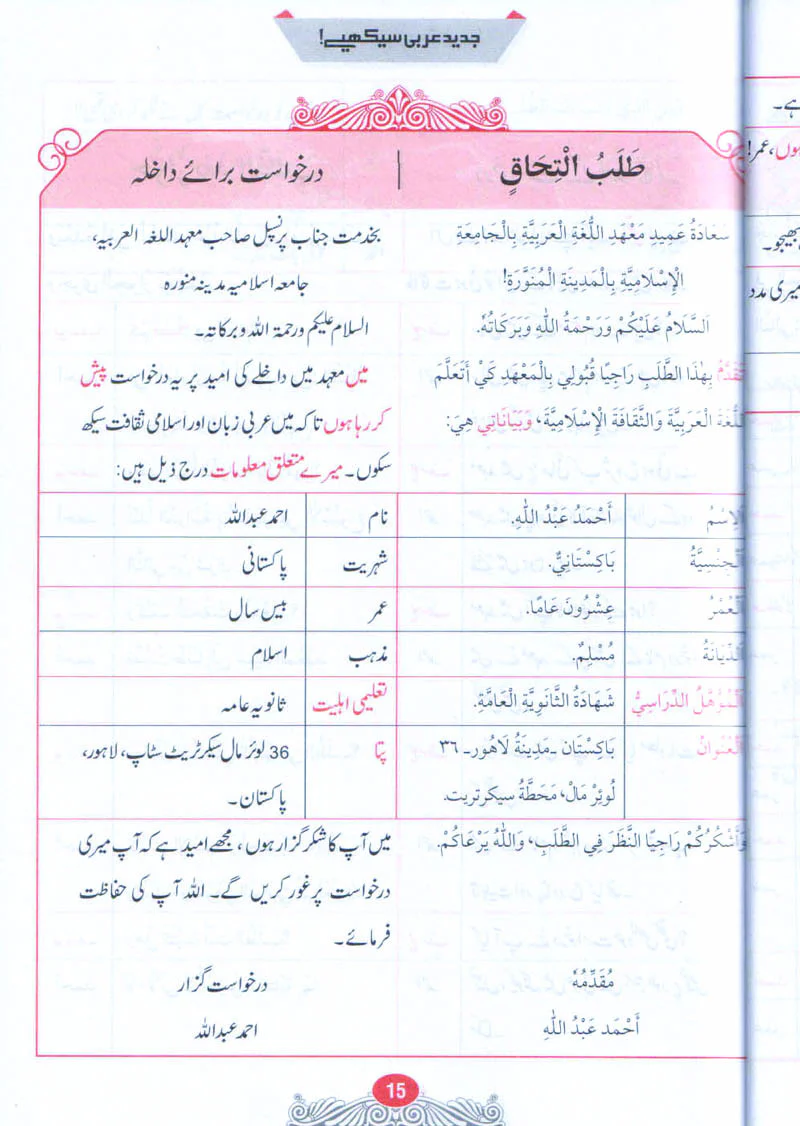 جدید عربی سیکھیے!
طَلَبُ الْتِحَاقٍ | درخواست برائے داخلہ
سَعَادَةُ عَمِيدِ مَعْهَدِ اللُّغَةِ الْعَرَبِيَّةِ بِالْجَامِعَةِ
الْإِسْلَامِيَّةِ بِالْمَدِينَةِ الْمُنَوَّرَةِ!
اَلسَّلَامُ عَلَيْكُمْ وَرَحْمَةُ اللّٰهِ وَبَرَكَاتُهُ.
بِهٰذَا الطَّلَبِ رَاجِيًا قُبُولِي بِالْمَعْهَدِ كَيْ أَتَعَلَّمَ
اللُّغَةَ الْعَرَبِيَّةَ وَالثَّقَافَةَ الْإِسْلَامِيَّةَ، وَبَيَانَاتِي هِيَ:
بخدمت جناب پرنسپل صاحب معہد اللغہ العربیہ،
جامعہ اسلامیہ مدینہ منورہ
السلام علیکم ورحمۃ اللہ وبرکاتہ۔
میں معہد میں داخلے کی امید پر یہ درخواست پیش
کر رہا ہوں تاکہ میں عربی زبان اور اسلامی ثقافت سیکھ
سکوں۔ میرے متعلق معلومات درج ذیل ہیں:
اَلِاسْمُ أَحْمَدُ عَبْدُ اللّٰهِ. نام احمد عبداللہ
اَلْجِنْسِيَّةُ بَاكِسْتَانِيٌّ. شہریت پاکستانی
اَلْعُمْرُ عِشْرُونَ عَامًا. عمر بیس سال
اَلدِّيَانَةُ مُسْلِمٌ. مذہب اسلام
اَلْمُؤَهِّلُ الدِّرَاسِيُّ شَهَادَةُ الثَّانَوِيَّةِ الْعَامَّةِ. تعلیمی اہلیت ثانویہ عامہ
اَلْعُنْوَانُ بَاكِسْتَان ـ مَدِينَةُ لَاهُور ـ ٣٦ پتا 36 لوئر مال سیکرٹریٹ سٹاپ، لاہور،
لُوئِرْ مَال، مَحَطَّةُ سیکرتریت. پاکستان۔
وَأَشْكُرُكُمْ رَاجِيًا النَّظَرَ فِي الطَّلَبِ، وَاللّٰهُ يَرْعَاكُمْ.
میں آپ کا شکر گزار ہوں، مجھے امید ہے کہ آپ میری
درخواست پر غور کریں گے۔ اللہ آپ کی حفاظت
فرمائے۔
مُقَدِّمُهُ درخواست گزار
أَحْمَد عَبْدُ اللّٰهِ احمد عبداللہ
15
ہے۔
ہوں، عمر!
بھیجو۔
میری مدد